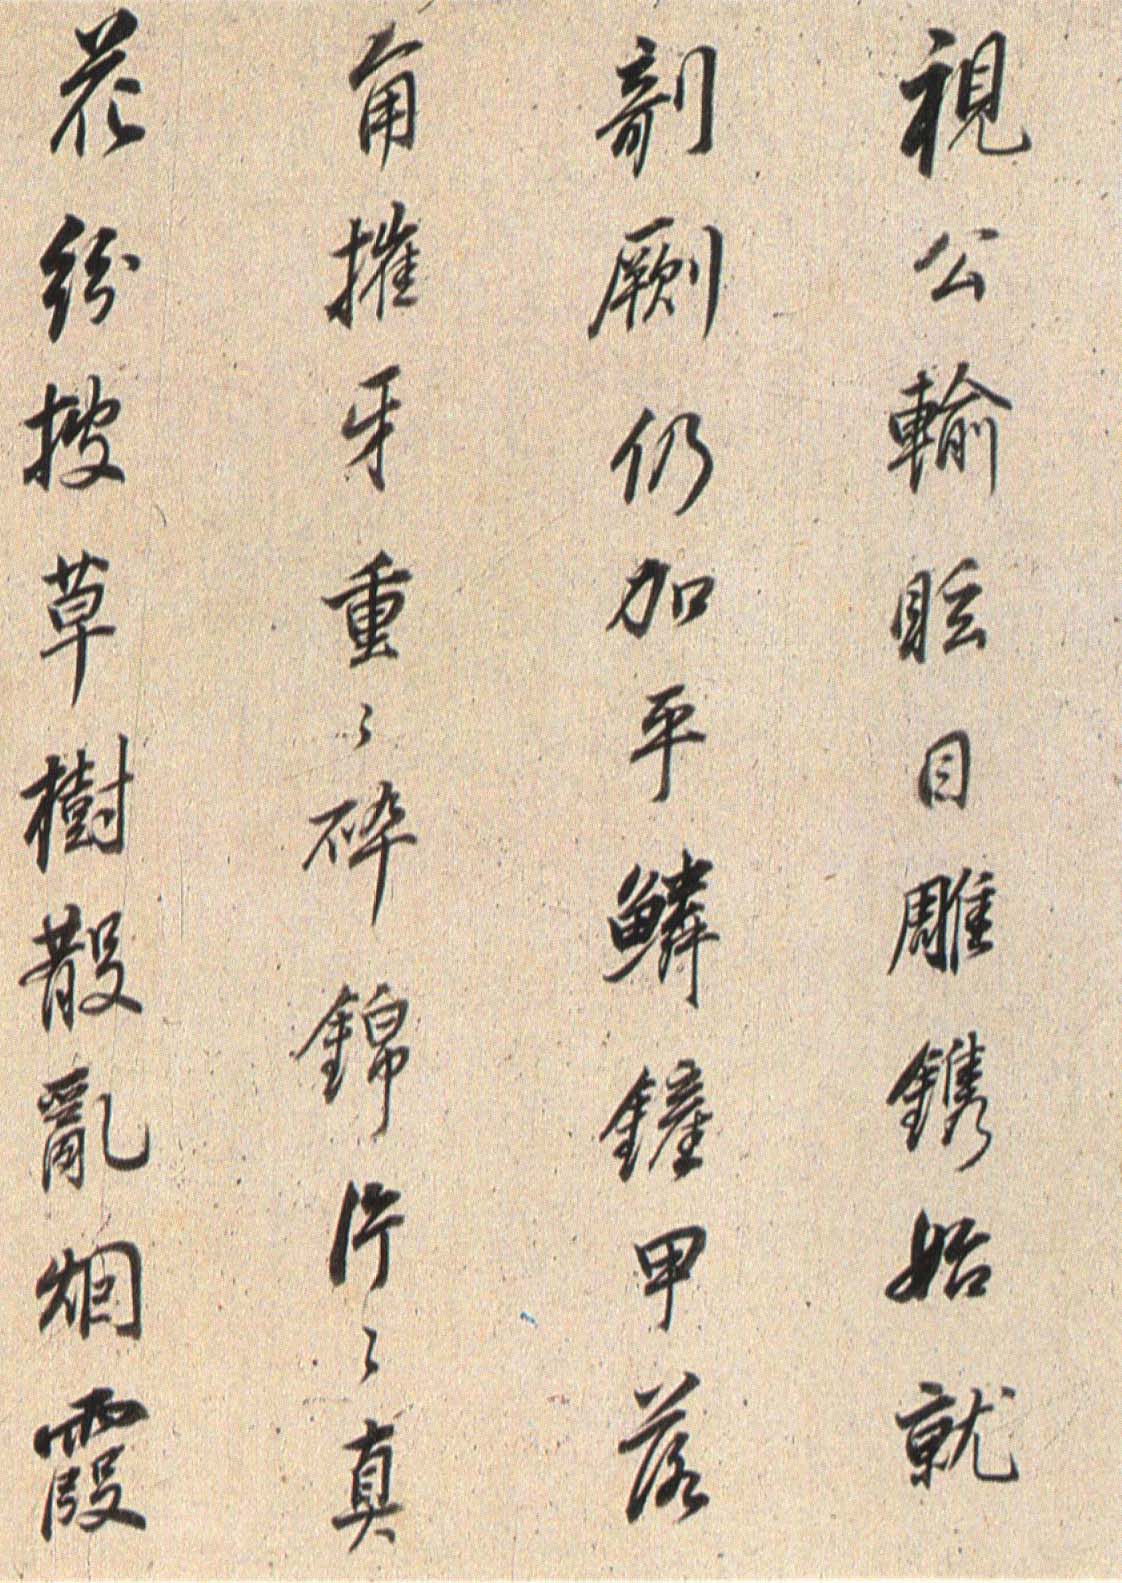 視公輸眩目雕鐫始就
剞劂仍加平鱗鏟甲落
角摧牙重〻碎錦片〻真
花紛披草樹散亂烟霞